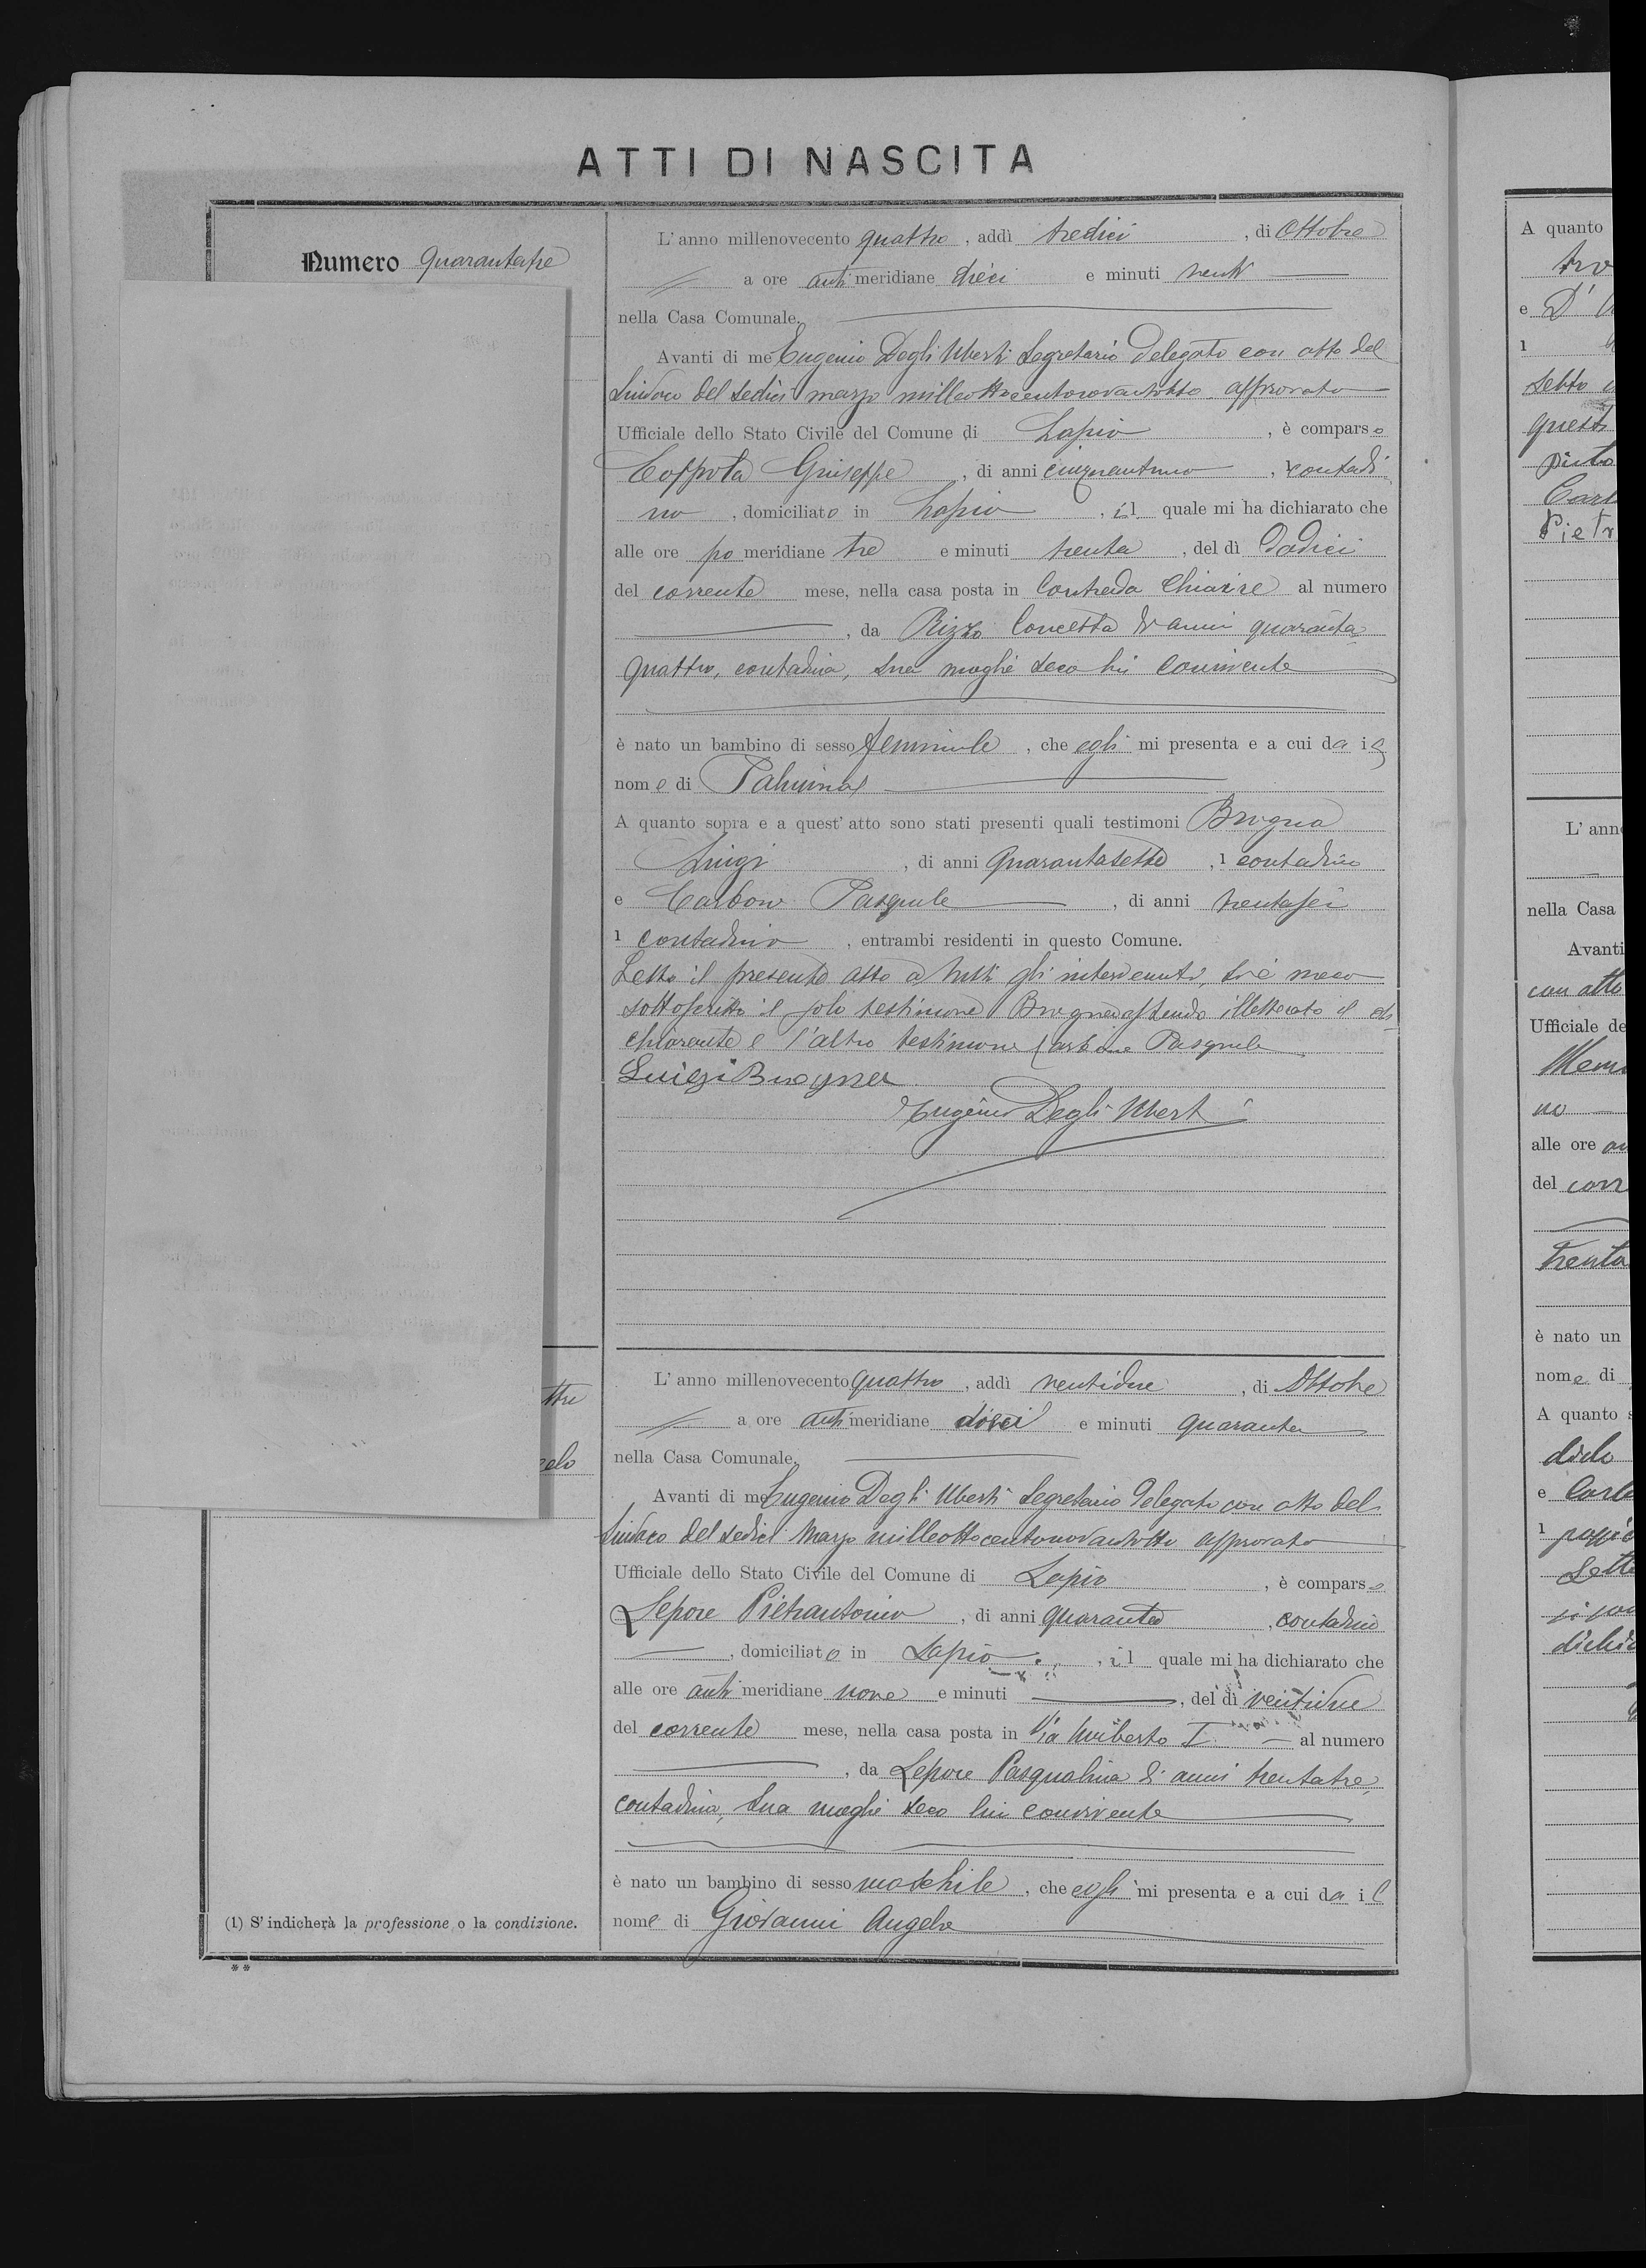 ATTI DI NASCITA
Numero Quarantatre
L'anno millenovecento quattro, addì tredici, di Ottobre
a ore anti meridiane dieci e minuti venti
nella Casa Comunale.
Avanti di me Eugenio Degli Uberti Segretario Delegato con atto del
Sindaco del sedici marzo milleottocentonovantotto approvato
Ufficiale dello Stato Civile del Comune di Lapio, è comparso
Coppola Giuseppe, di anni cinquantuno, contadi
no, domiciliato in Lapio, il quale mi ha dichiarato che
alle ore po meridiane tre e minuti trenta, del dì dodici
del corrente mese, nella casa posta in Contrada Chiaire al numero
, da Rizzo Concetta di anni quaranta
quattro, contadina, sua moglie seco lui convivente
è nato un bambino di sesso femminile, che egli mi presenta e a cui da il
nome di
A quanto sopra e a quest'atto sono stati presenti quali testimoni Brogna
Luigi, di anni quarantasette, 1 contadino
e Carbone Pasquale, di anni trentasei
1 contadino, entrambi residenti in questo Comune.
Letto il presente atto a tutti gli intervenuti, si è meco
sottoscritto il solo testimone Brogna essendo illetterato il di
chiarante e l'altro testimone Carbone Pasquale
Luigi Brogna
Eugenio Degli Uberti
ttro
gelo
L'anno millenovecento quattro, addì ventidue, di Ottobre
a ore anti meridiane dieci e minuti quaranta
nella Casa Comunale.
Avanti di me Eugenio Degli Uberti Segretario Delegato con atto del
Sindaco del sedici Marzo milleottocentonovantotto approvato
Ufficiale dello Stato Civile del Comune di Lapio, è comparso
Lepore Pietrantonio, di anni quaranta, contadino
, domiciliato in Lapio, il quale mi ha dichiarato che
alle ore anti meridiane nove e minuti, del dì ventidue
del corrente mese, nella casa posta in Via Umberto I al numero
, da Lepore Pasqualina di anni trentatre,
contadina, sua moglie seco lui convivente
è nato un bambino di sesso maschile, che egli mi presenta e a cui da il
nome di Giovanni Angelo
(1) S'indicherà la professione o la condizione.
**
A quanto
e D'
1
setto
questi
pinto
Carb
Pietr
L'anno
nella Casa
Avanti
con atto
Ufficiale de
no
alle ore an
del corr
trenta
è nato un
nome di
A quanto s
e Carb
1
Letto
dichia